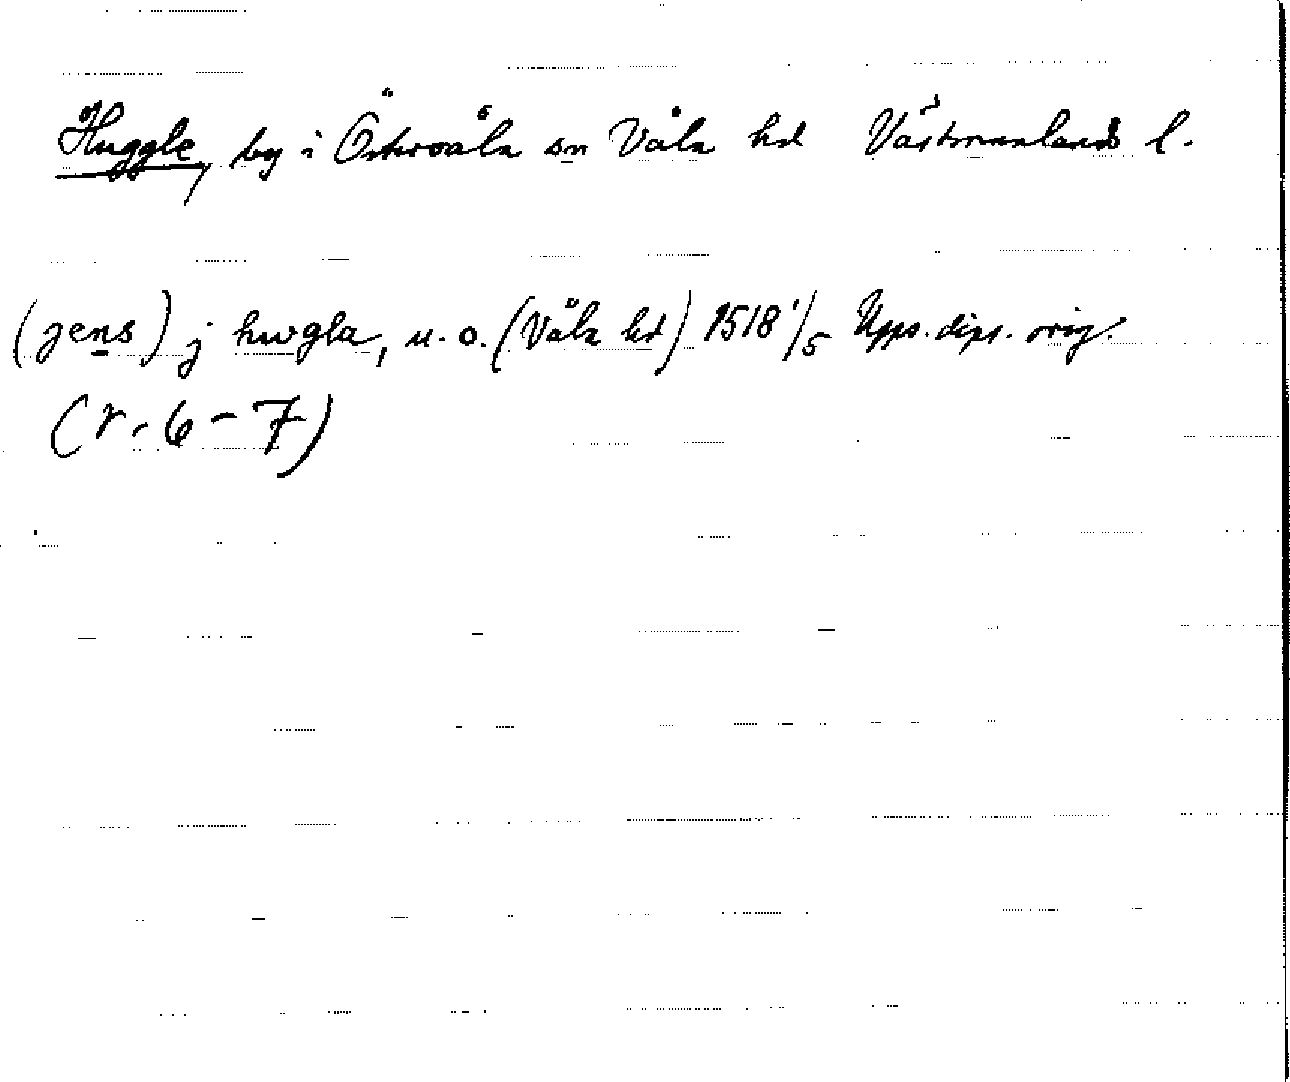 Huggle, by i Östervåla sn Våla hd Västmanlands l.
(jens) j hwgla, u. o. (Våla hd) 1518 1/5 Upps. dipl. orig.
(r. 6-7)